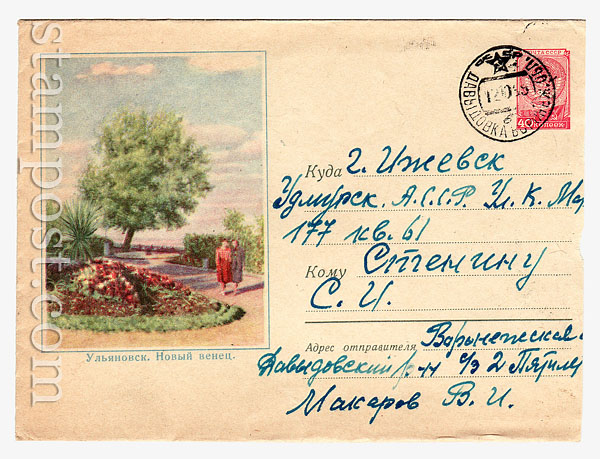 stampost.com
ПОЧТА СССР
40 КОПЕЕК
ДАВЫДОВКА
Куда г. Ижевск
Удмурск. А.С.С.Р. Ул. К. Мар
177 кв. 61
Кому Стенину
С. И.
Адрес отправителя Воронежская
Давыдовский р-н 2
Макаров В. И.
Ульяновск. Новый венец.